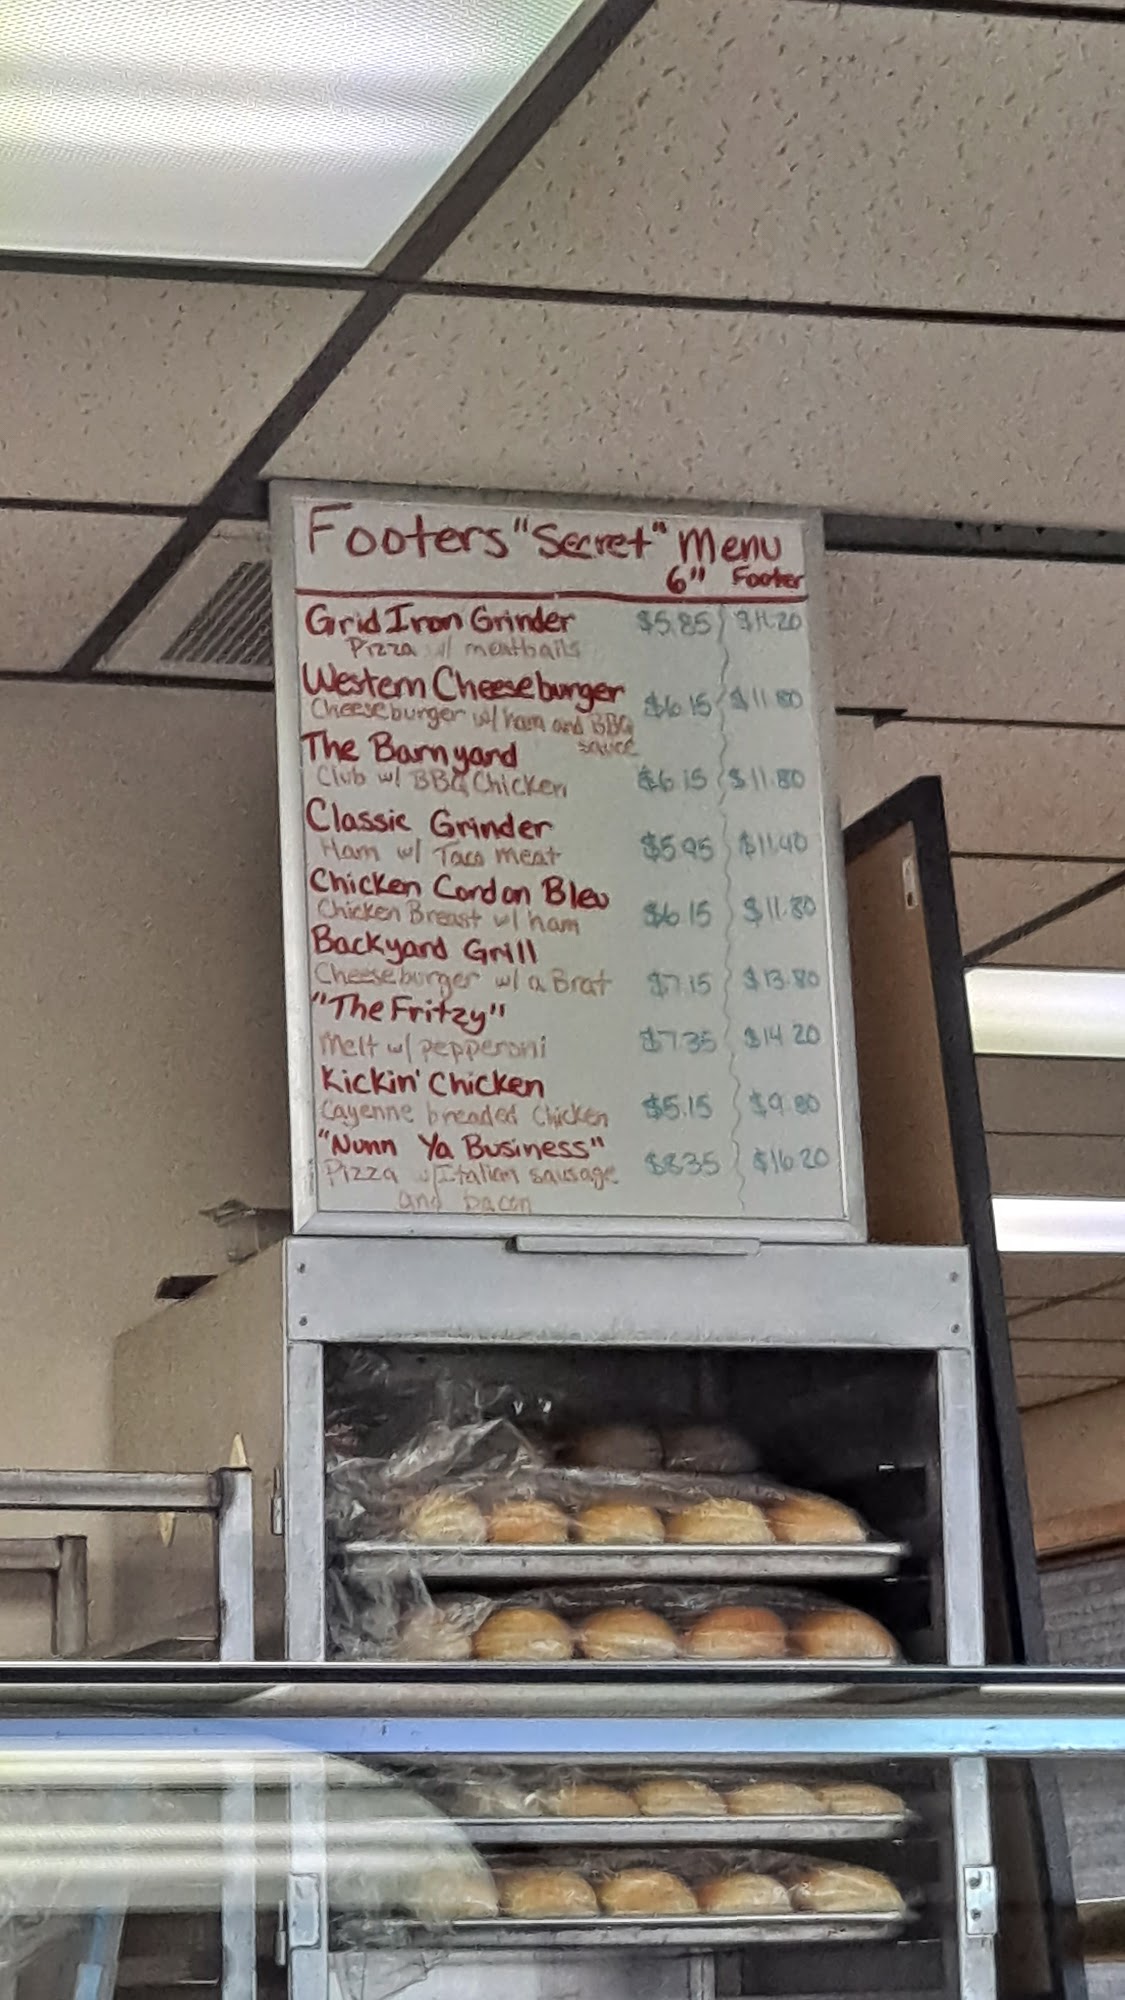 Footers "Secret" Menu
6" Footer
Grid Iron Grinder $5.85 $11.20
Pizza w/ meatballs
Western Cheeseburger $6.15 $11.80
Cheeseburger w/ ham and BBQ
sauce
The Barnyard
Club w/ BBQ Chicken $6.15 $11.80
Classic Grinder
Ham w/ Taco meat $5.95 $11.40
Chicken Cordon Bleu
Chicken Breast w/ ham $6.15 $11.80
Backyard Grill
Cheeseburger w/ a Brat $7.15 $13.80
"The Fritzy"
Melt w/ pepperoni $7.35 $14.20
Kickin' Chicken
Cayenne breaded Chicken $5.15 $9.80
"Nunn Ya Business" $8.35 $16.20
Pizza w/ Italian sausage
and bacon